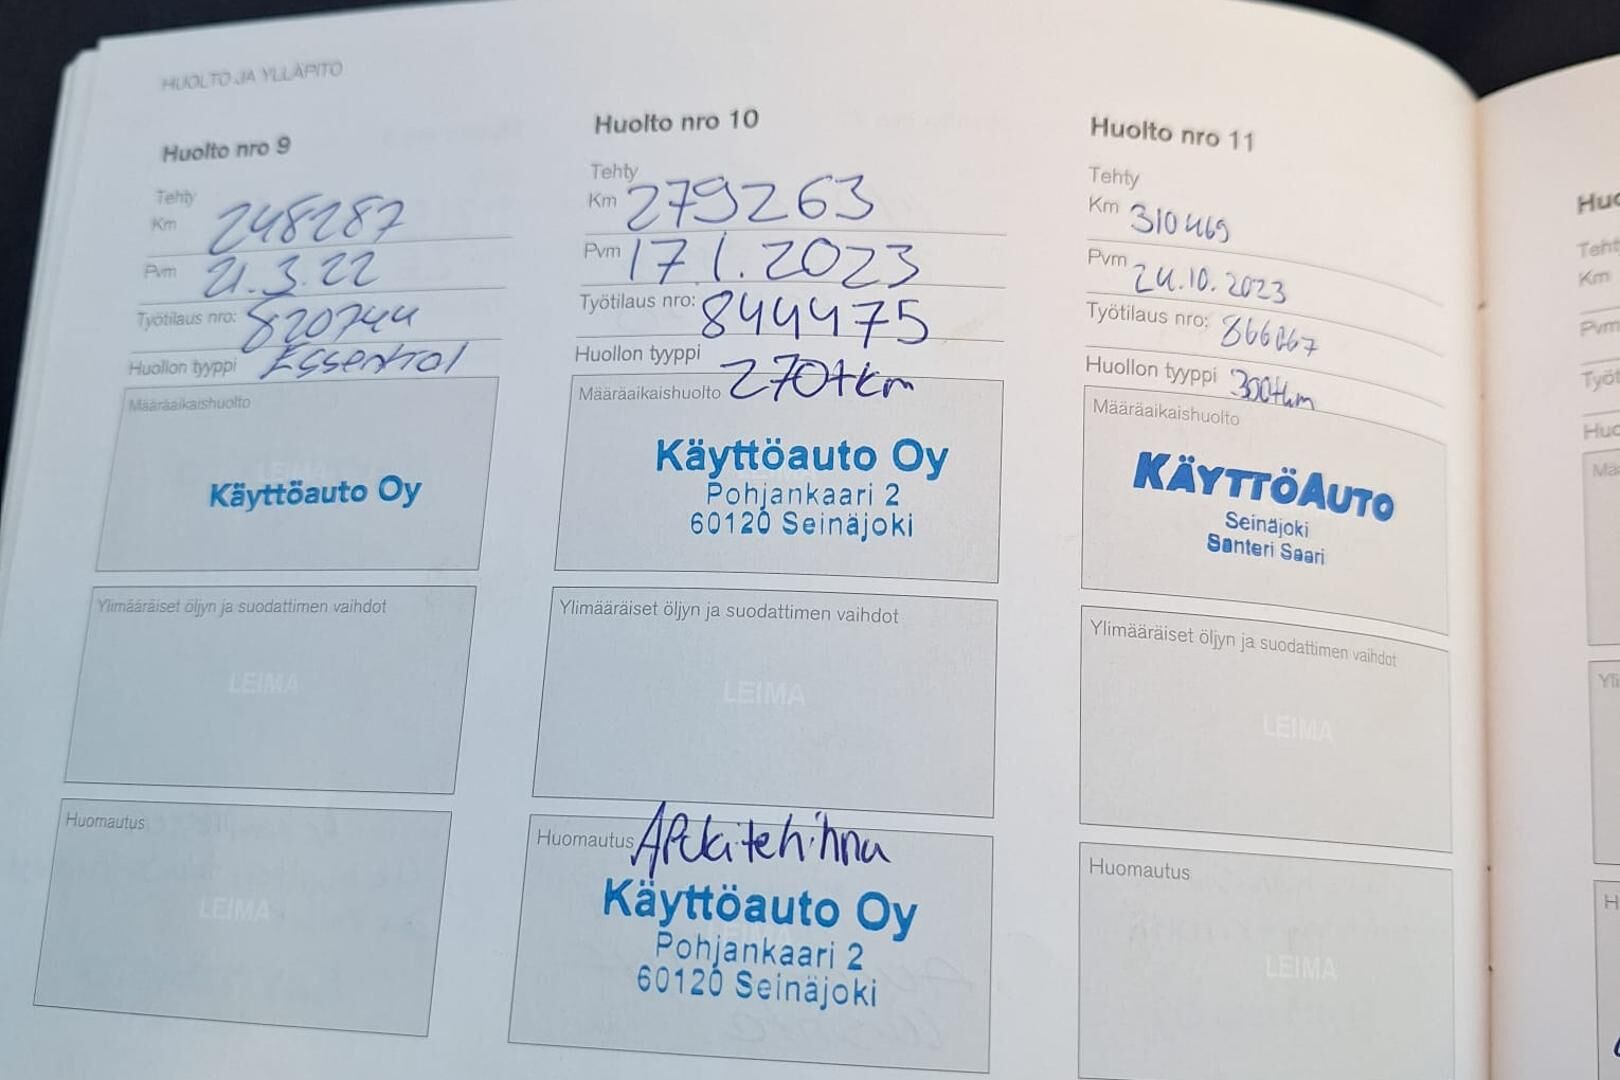 HUOLTO JA YLLÄPITO
Huolto nro 9
Tehty
Km 248287
Pvm 21.3.22
Työtilaus nro: 820744
Huollon tyyppi Essential
Määräaikaishuolto
LEIMA
Käyttöauto Oy
Ylimääräiset öljyn ja suodattimen vaihdot
LEIMA
Huomautus
LEIMA
Huolto nro 10
Tehty
Km 279263
Pvm 17.1.2023
Työtilaus nro: 844475
Huollon tyyppi 270tkm
Määräaikaishuolto
Käyttöauto Oy
Pohjankaari 2
60120 Seinäjoki
Ylimääräiset öljyn ja suodattimen vaihdot
LEIMA
Huomautus
Käyttöauto Oy
Pohjankaari 2
60120 Seinäjoki
Huolto nro 11
Tehty
Km 310469
Pvm 24.10.2023
Työtilaus nro: 866067
Huollon tyyppi 300tkm
Määräaikaishuolto
KÄYTTÖAUTO
Seinäjoki
Santeri Saari
Ylimääräiset öljyn ja suodattimen vaihdot
LEIMA
Huomautus
LEIMA
Km
Pvm